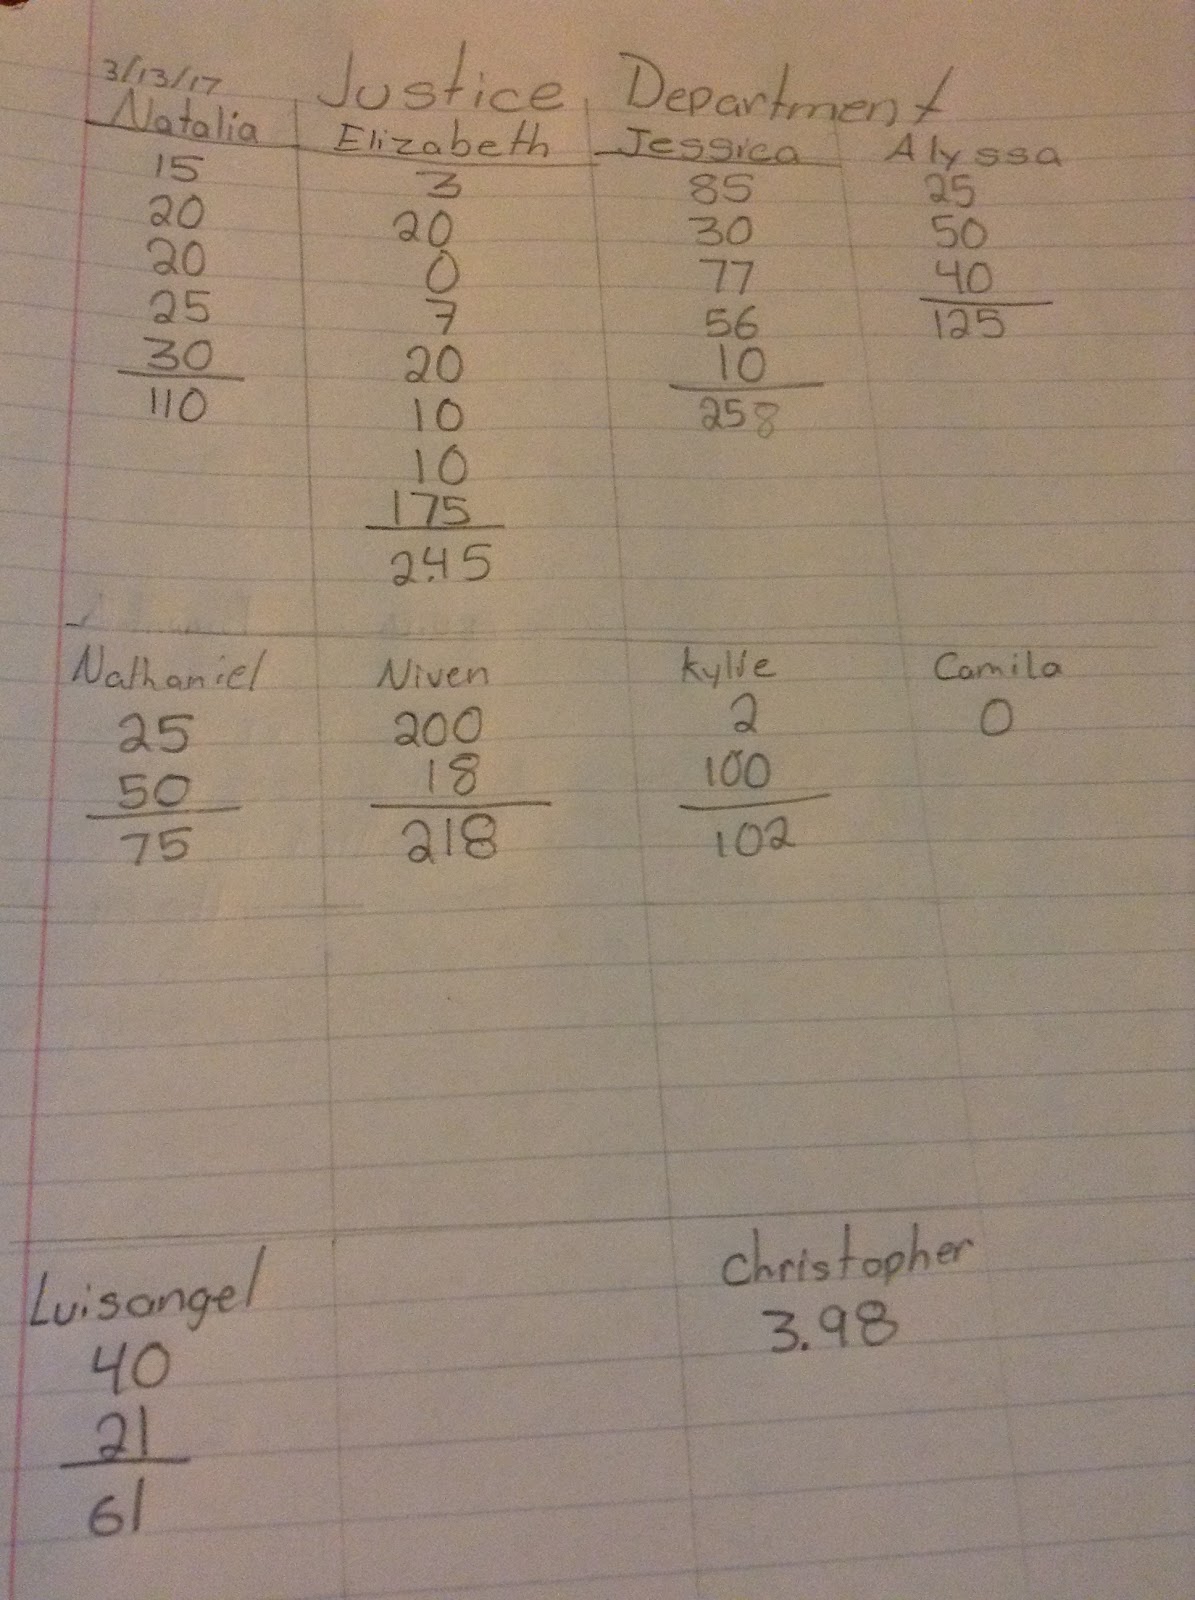 3/13/17 Justice Department
Natalia Elizabeth Jessica Alyssa
15 3 85 25
20 20 30 50
20 0 77 40
25 7 56 125
30 20 10
110 10 258
10
175
2.45
Nathaniel Niven Kylie Camila
25 200 2 0
50 18 100
75 218 102
Luisangel Christopher
40 3.98
21
61